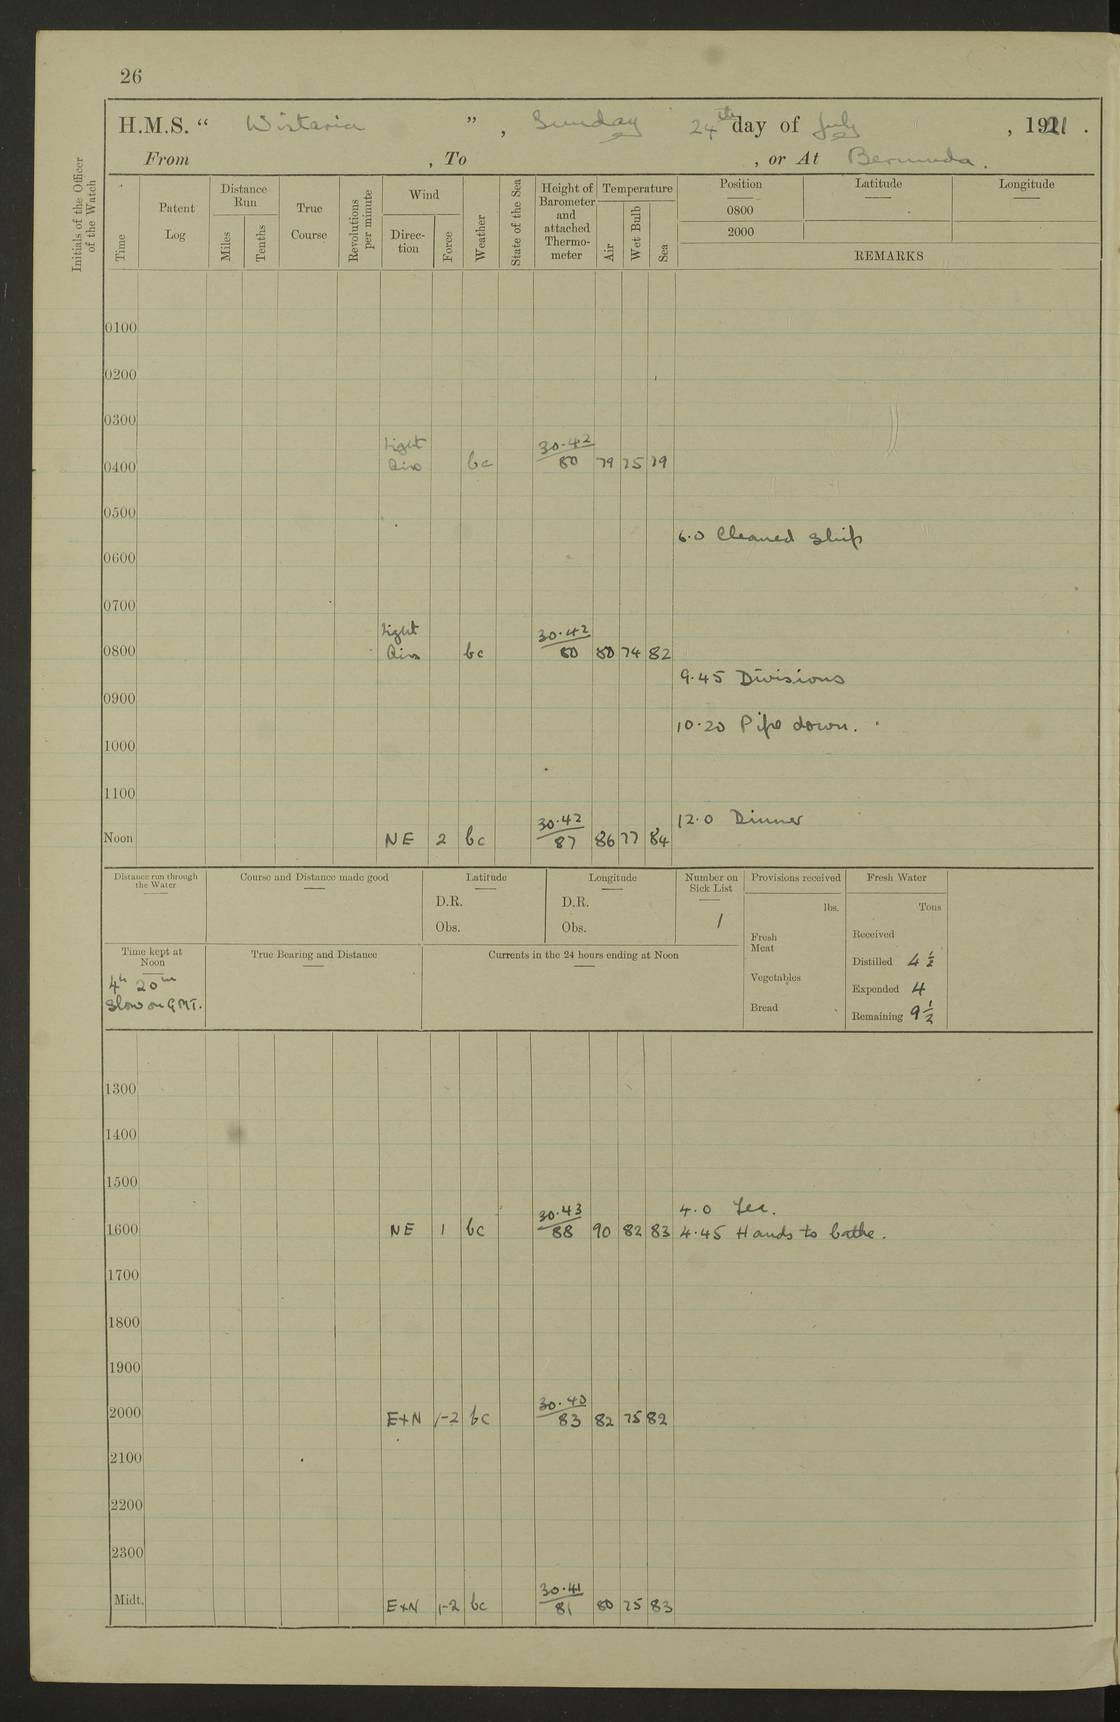 26
H.M.S. “ Wistaria ” , Sunday 24th day of July , 1921 .
From , To , or At Bermuda .
Initials of the Officer of the Watch
Time
Patent Log
Distance Run
Miles
Tenths
True Course
Revolutions per minute
Wind
Direc-tion
Force
Weather
State of the Sea
Height of Barometer and attached Thermo-meter
Temperature
Air
Wet Bulb
Sea
Position
Latitude
Longitude
0800
2000
REMARKS
0100
0200
0300
Light 30.42
0400 Airs bc 80 79 75 79
0500
6.0 Cleaned ship
0600
0700
Light 30.42
0800 Airs bc 80 80 74 82
9.45 Divisions
0900
10.20 Pipe down.
1000
1100
30.42 12.0 Dinner
Noon NE 2 bc 87 86 77 84
Distance run through the Water
Course and Distance made good
Latitude
D.R.
Obs.
Longitude
D.R.
Obs.
Number on Sick List
1
Provisions received
lbs.
Fresh Meat
Vegetables
Bread
Fresh Water
Tons
Received
Distilled 4 1/2
Expended 4
Remaining 9 1/2
Time kept at Noon
4h 20m
Slow on GMT.
True Bearing and Distance
Currents in the 24 hours ending at Noon
1300
1400
1500
30.43 4.0 Tea.
1600 NE 1 bc 88 90 82 83 4.45 Hands to bathe.
1700
1800
1900
30.40
2000 ExN 1-2 bc 83 82 75 82
2100
2200
2300
30.41
Midt. ExN 1-2 bc 81 80 75 83